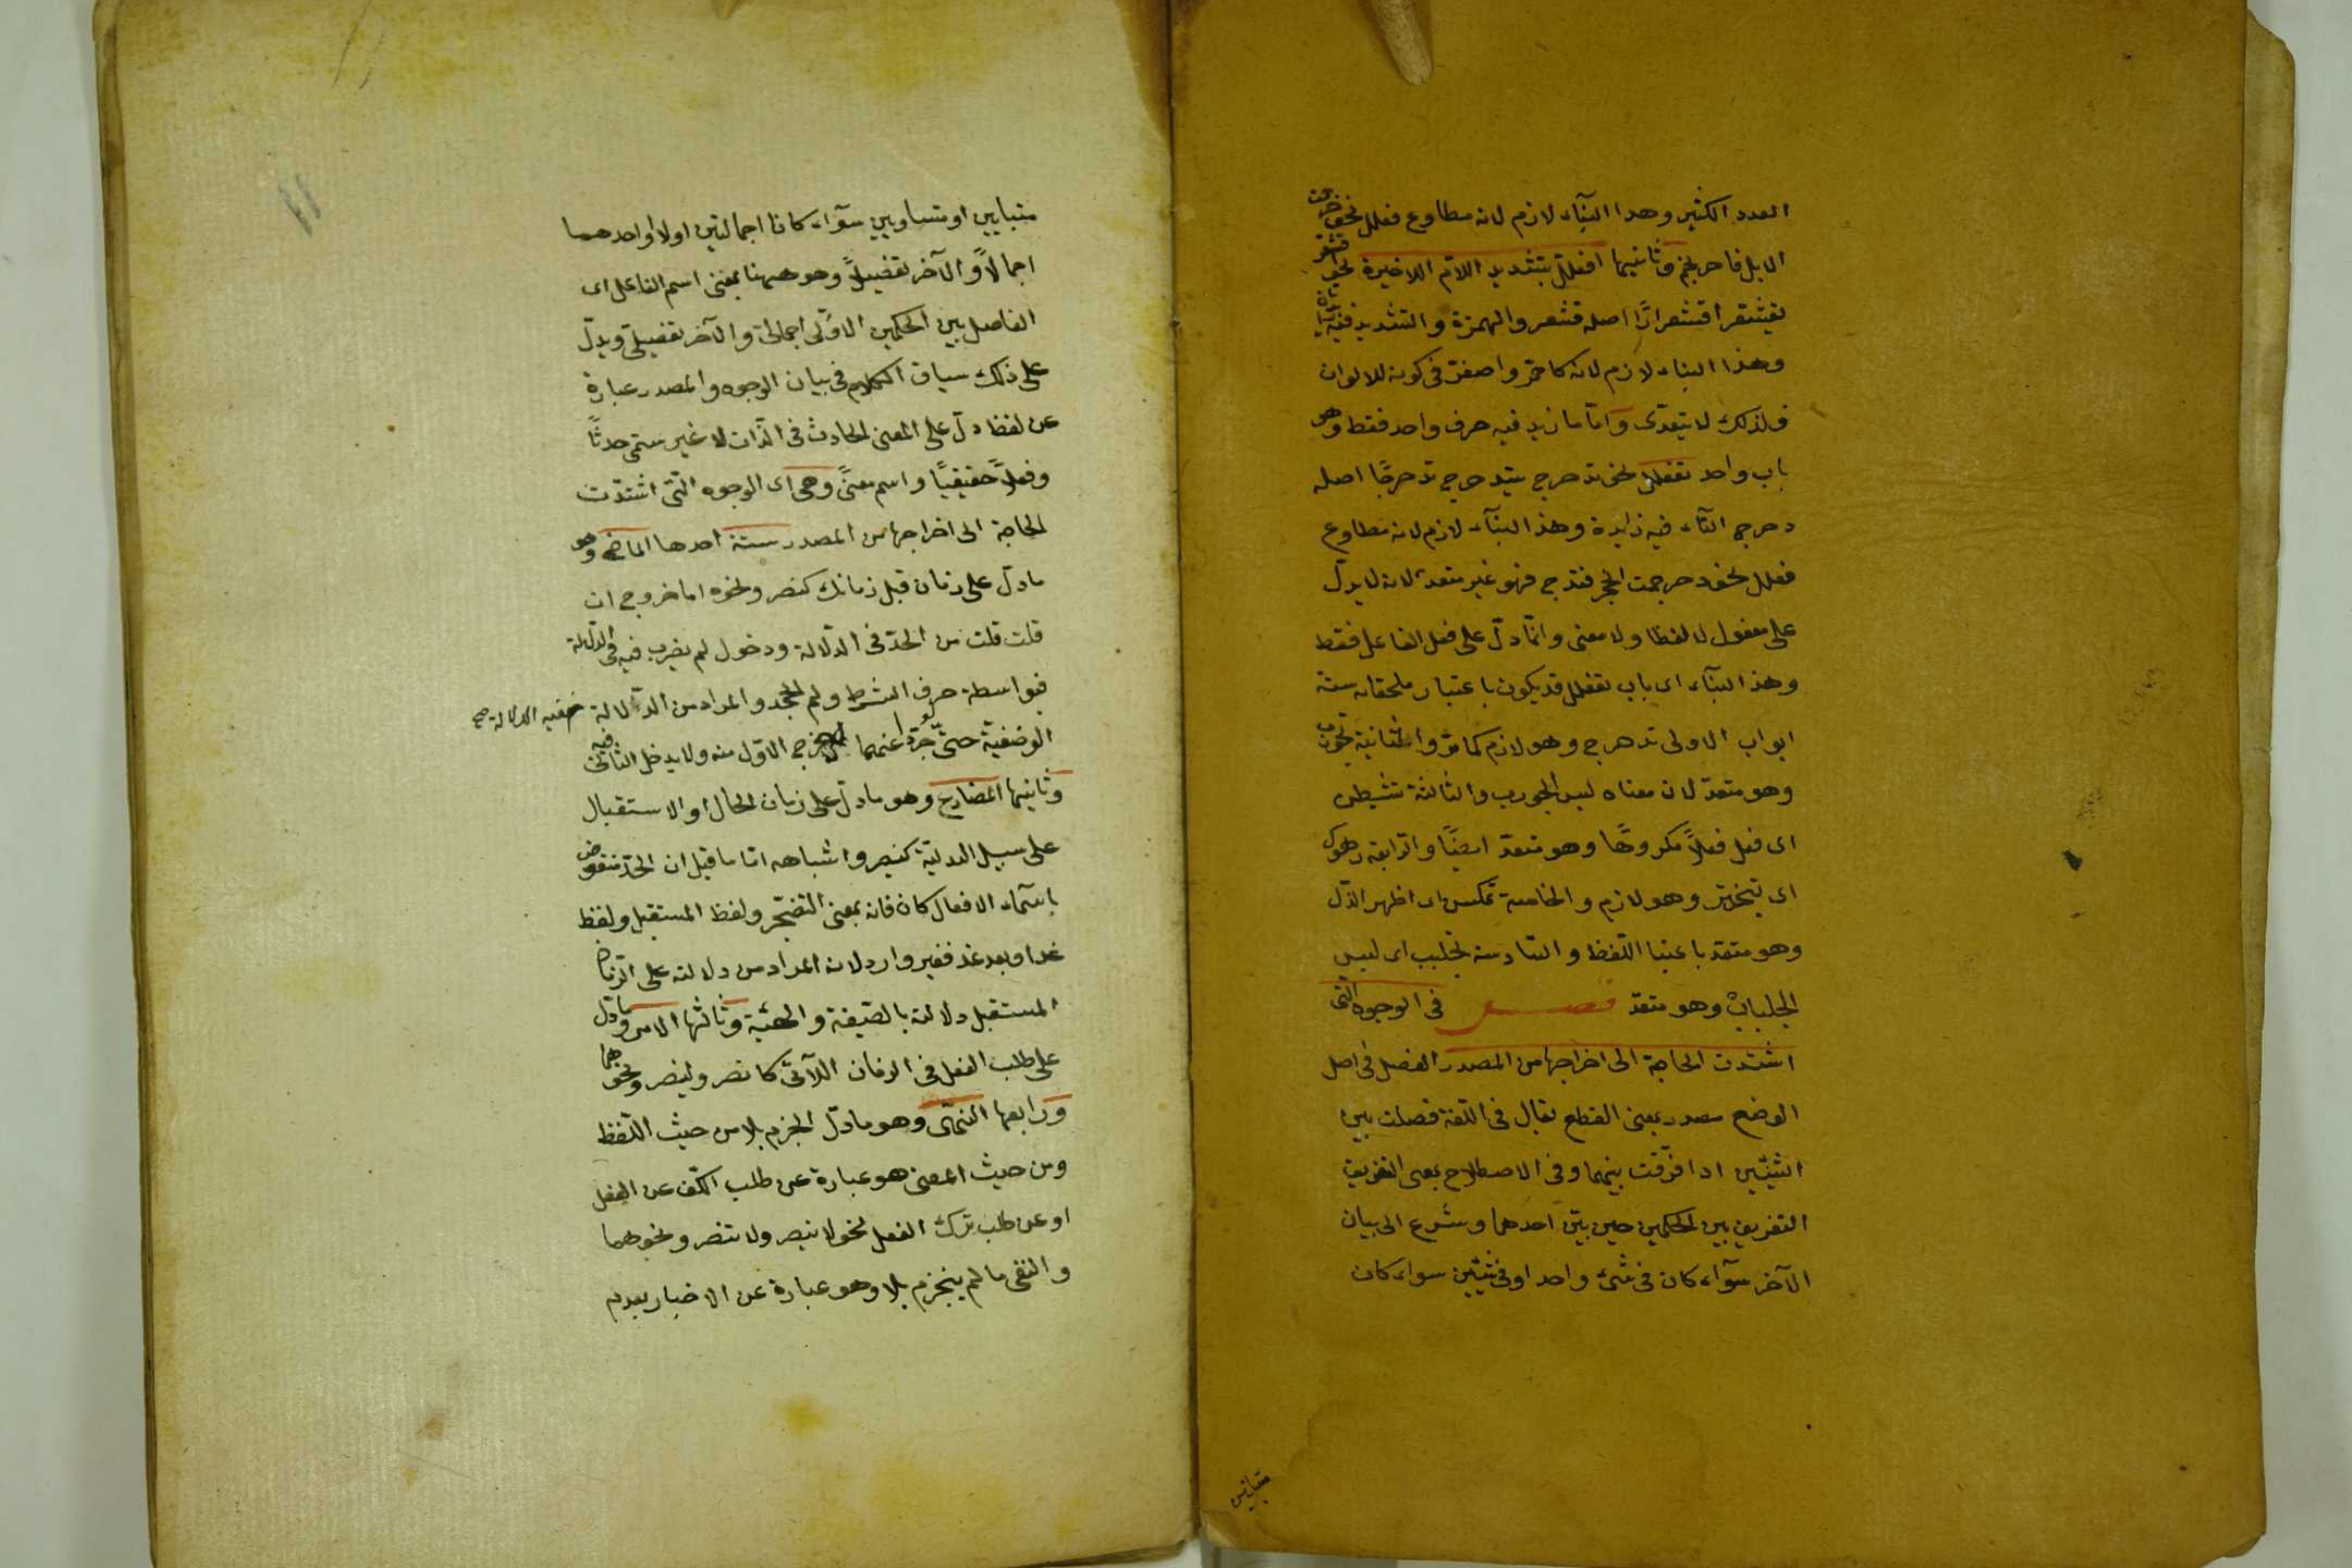 العدد الكثير وهذا البنآء لازم لانه مطاوع فعلل نحو حرجمت
الابل فاحرنجم وثانيهما افعللّ بتشديد اللام الاخيرة نحو اقشعرّ
يقشعر اقشعرارًا اصله قشعر والهمزة والتشديد فيه زائدتان
وهذا البناء لازم لانه كاحمرّ واصفرّ فى كونه للالوان
فلذلك لا يتعدّى وامّا ما زيد فيه حرف واحد فقط وهو
باب واحد تفعلل نحو تدحرج يتدحرج تدحرجًا اصله
دحرج التآء فيه زايدة وهذا البنآء لازم لانه مطاوع
فعلل نحو دحرجت الحجر فتدحرج فهو غير متعدّ لانه لا يدلّ
على مفعول لا لفظا ولا معنى وانّما دلّ على فعل الفاعل فقط
وهذا البنآء اى باب تفعلل قد يكون باعتبار ملحقاته ستة
ابواب الاولى تدحرج وهو لازم كما مرّ والثانية تجورب
وهو متعدّ لان معناه لبس الجورب والثالثة تشيطن
اى فعل فعلاً مكروهًا وهو متعدّ ايضًا والرابعة رهوك
اى تبختر وهو لازم والخامسة تمكسن اى اظهر الذّل
وهو متعدّ باعتبا اللّفظ والسّادسة تجلبب اى لبس
الجلباب وهو متعدّ فصل فى الوجوه الّتى
اشتدت الحاجة الى اخراجها من المصدر الفصل فى اصل
الوضع مصدر بمعنى القطع يقال فى اللّغة فصلت بين
الشيئين اذا فرّقت بينهما وفى الاصطلاح بمعنى التفريق
التفريق بين الحكمين حين بيّن احدهما وشرع الى بيان
الآخر سوآء كان فى شىء واحد او فى شيئين سواء كان
متباينين
متباينين او متساويين سوآء كانا اجمالتين اولا او احدهما
اجمالاً والآخر تفضيلاً وهو ههنا بمعنى اسم الفاعل اى
الفاصل بين الحكمين الاوّلى اجمالىّ والآخر تفضيلىّ ويدلّ
على ذلك سياق الكلام فى بيان الوجوه والمصدر عبارة
عن لفظ دلّ على المعنى الحادث فى الذّات لا غير ستمى حدثًا
وفعلاً حقيقيًا واسم معنىً وهى اى الوجوه الّتى اشتدّت
الحاجة الى اخراجها من المصدر ستة احدها الماضى وهو
ما دلّ على زمان قبل زمانك كنصر ونحوه اما خروج ان
قلت قلت من الحدّ فى الدّلالة ودخول لم يضرب فيه فى الدّلالة
فبواسطة حرف الشرط ولم الجحد والمراد من الدّلالة
الوضعيّة حتىّ لو جرّدا عنهما لم يخرج الاوّل منه ولا يدخل الثانى فيه
وثانيها المضارع وهو ما دلّ على زمان الحال او الاستقبال
على سبيل البدليّة كينصر واشباهه امّا ما قيل ان الحدّ منقوض
باسمآء الافعال كان فانه بمعنى التضجّر ولفظ المستقبل ولفظ
غدا وبعد غد فغير وارد لان المراد من دلالته على الزمان
المستقبل دلالته بالصّيغة والهيئة وثالثها الامر وما دلّ
على طلب الفعل فى الزمان الآتى كانصر ولينصر ونحوهما
ورابعها النّهى وهو ما دلّ الجزم بلا من حيث اللّفظ
ومن حيث المعنى هو عبارة عن طلب الكفّ عن الفعل
او عن طلب ترك الفعل نحو لا ينصر ولا تنصر ونحوهما
والنفى ما لم ينجزم بلا وهو عبارة عن الاخبار بعدم